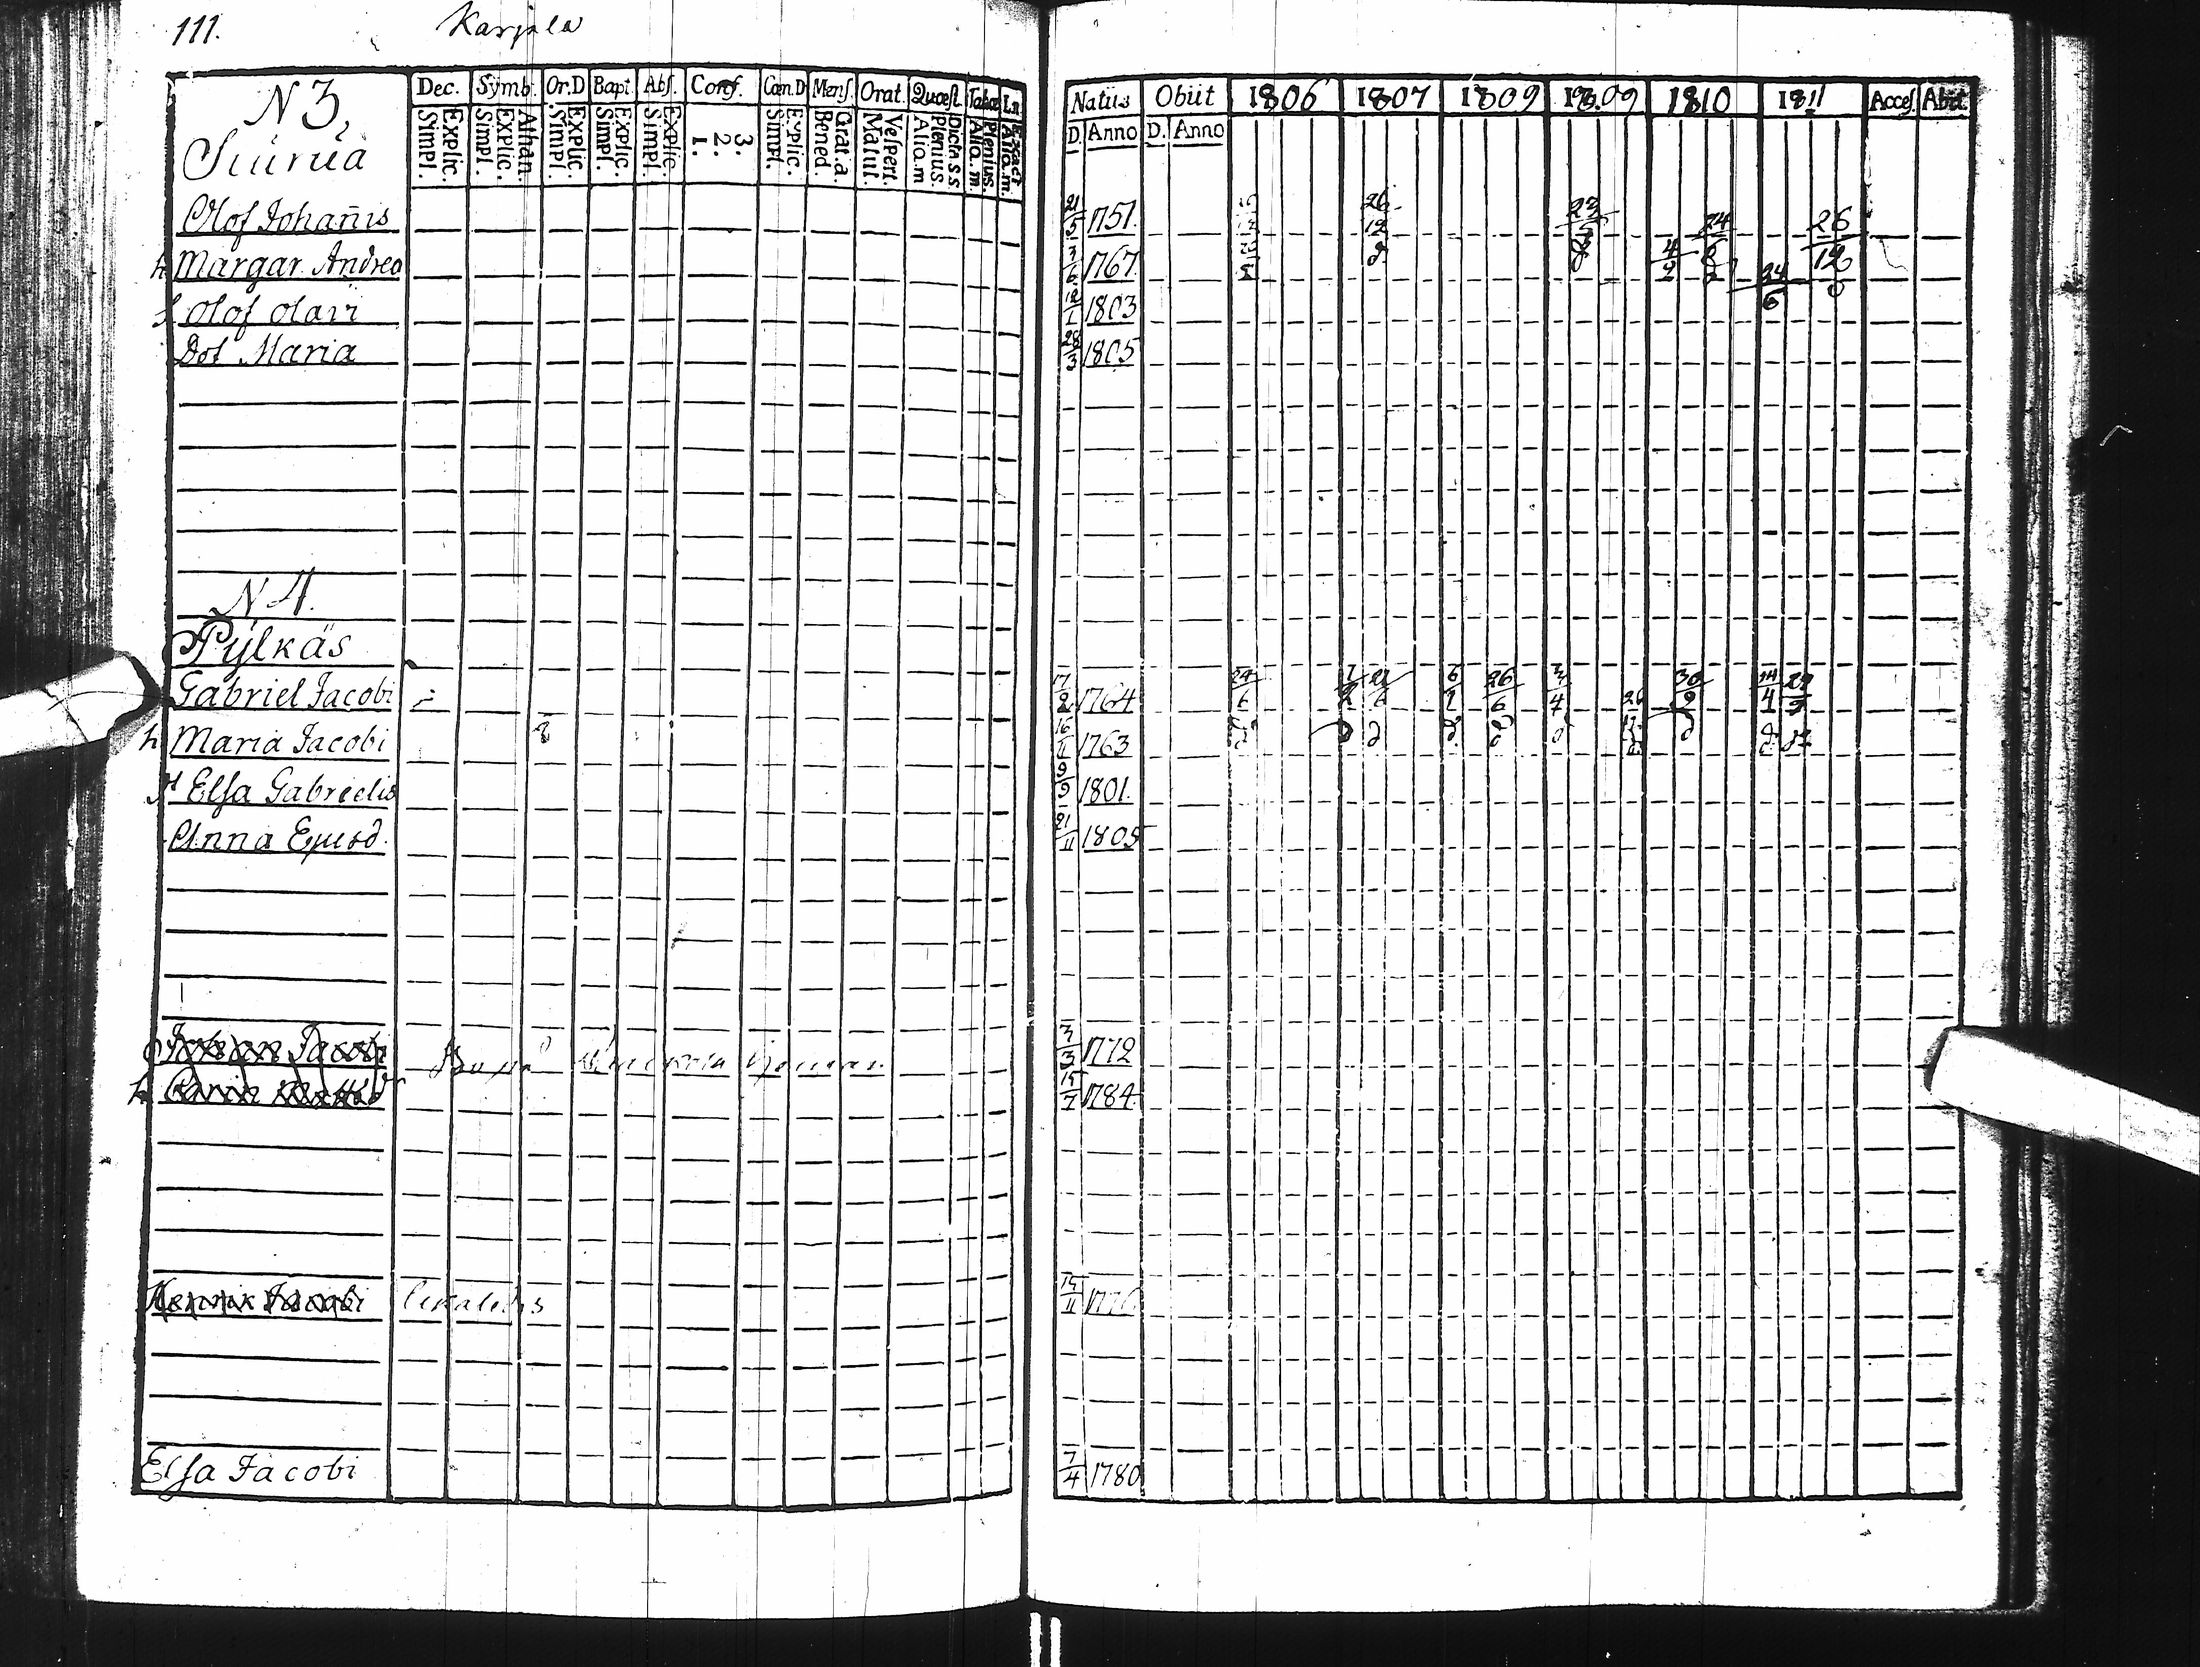 111. Karjala
N 3, Dec. Symb. Or.D Bapt. Abſ. Conf. Cœn.D Menſ. Orat. Quæſt. Natus Obiit 1806 1807 1809 1809 1810 1811 Acceſ. Abit.
Explic. Simpl. Athan. Explic. Simpl. Explic. Simpl. Explic. Simpl. Explic. Simpl. 3. 2. 1. Explic. Simpl. Grat. a. Bened. Veſpert. Matut. Dicta. s s Plenius. Alio. m Plenius. Alio. m. Exact Alio. m. D. Anno D. Anno
Siurua
Olof Johan̄is 21/5 1757. 26/12 24 26/12
h Margar. Andreæ 7/6 1767. 24/6
Olof Olavi 12/1 1803
Dot Maria 28/3 1805
N 4.
Pylkäs
Gabriel Jacobi 17/2 1764 24/6 6/1 26/6 3/4 30/9 14/4
h Maria Jacobi 16/11 1763
Elſa Gabrielis 9/9 1801.
Anna Ejusd. 21/11 1805
Johan Jacobi 3/3 1772
h 15/7 1784.
Henrik Jacobi 15/11
Elſa Jacobi 7/4 1780